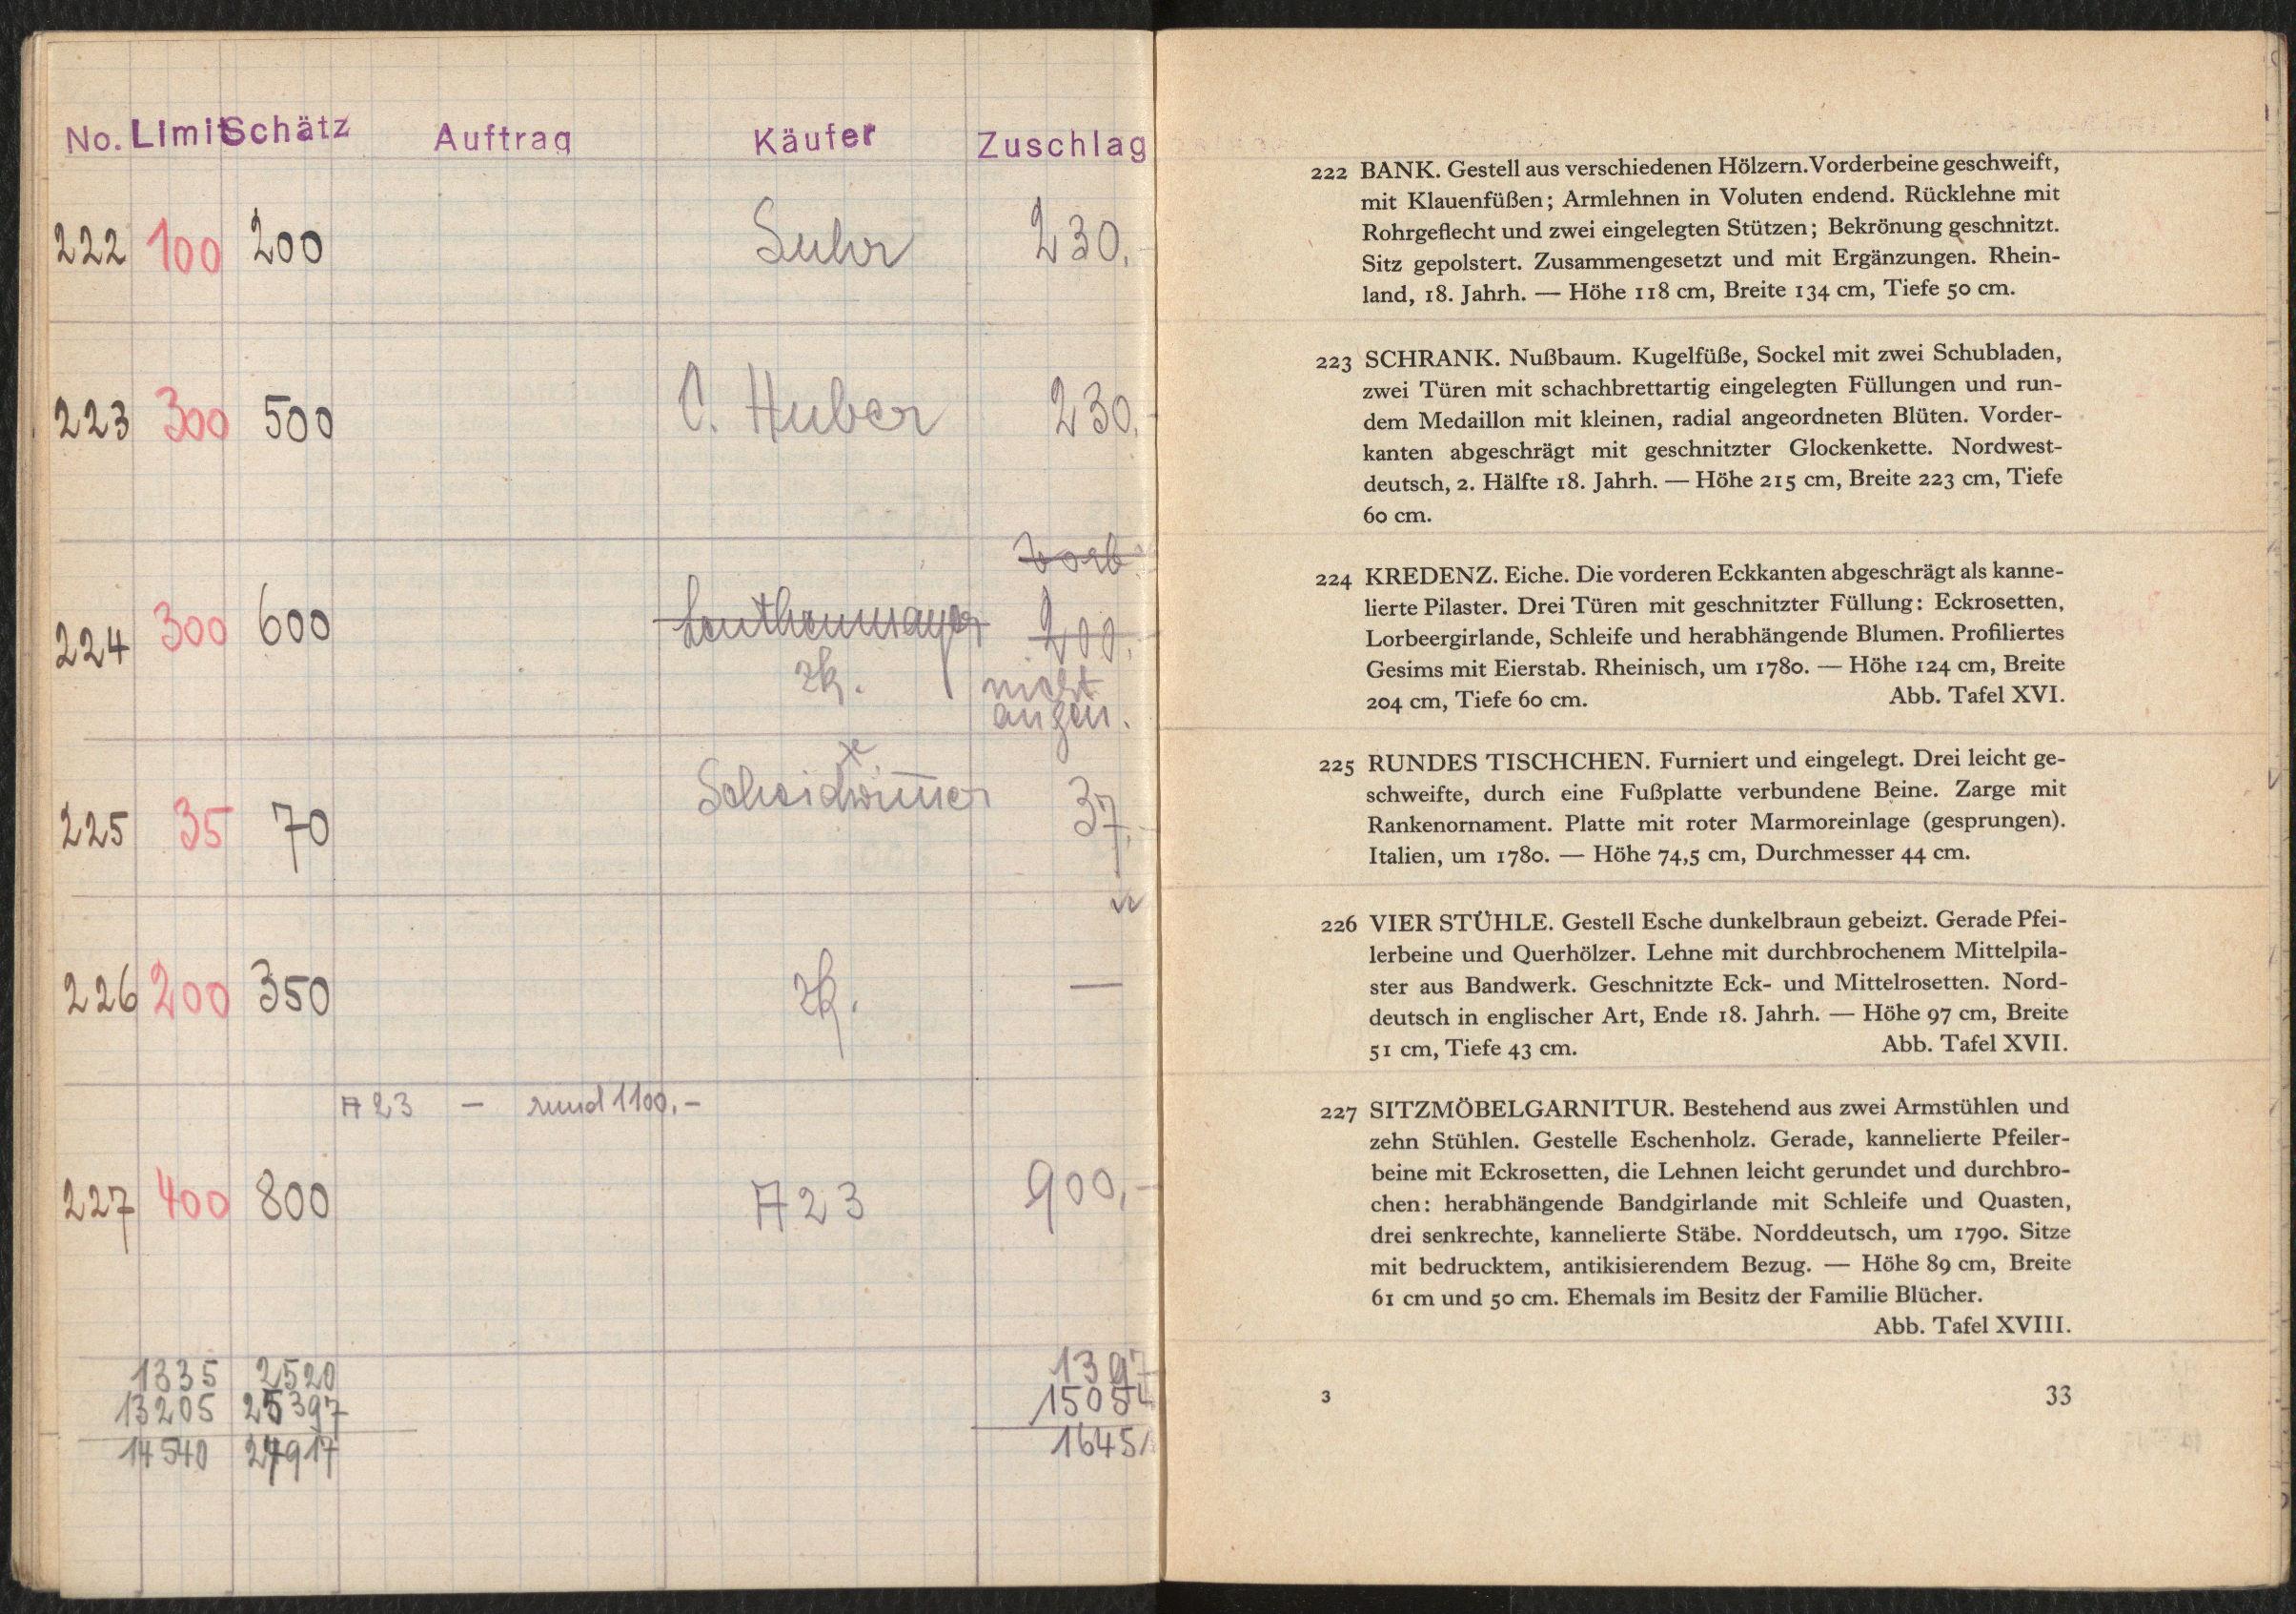 No. Limit Schätz Auftrag Käufer Zuschlag
222 100 200 Suhr 230.
223 300 500 C. Huber 230.-
vorb.
224 300 600 200.
zk. nicht
angen.
225 35 70 37.-
226 200 350 zk. —
A 23 — rund 1100.-
227 400 800 A 23 900,-
1335 2520 1397
13205 25397 15054
14540 27917 16451
222 BANK. Gestell aus verschiedenen Hölzern. Vorderbeine geschweift,
mit Klauenfüßen; Armlehnen in Voluten endend. Rücklehne mit
Rohrgeflecht und zwei eingelegten Stützen; Bekrönung geschnitzt.
Sitz gepolstert. Zusammengesetzt und mit Ergänzungen. Rhein-
land, 18. Jahrh. — Höhe 118 cm, Breite 134 cm, Tiefe 50 cm.
223 SCHRANK. Nußbaum. Kugelfüße, Sockel mit zwei Schubladen,
zwei Türen mit schachbrettartig eingelegten Füllungen und run-
dem Medaillon mit kleinen, radial angeordneten Blüten. Vorder-
kanten abgeschrägt mit geschnitzter Glockenkette. Nordwest-
deutsch, 2. Hälfte 18. Jahrh. — Höhe 215 cm, Breite 223 cm, Tiefe
60 cm.
224 KREDENZ. Eiche. Die vorderen Eckkanten abgeschrägt als kanne-
lierte Pilaster. Drei Türen mit geschnitzter Füllung: Eckrosetten,
Lorbeergirlande, Schleife und herabhängende Blumen. Profiliertes
Gesims mit Eierstab. Rheinisch, um 1780. — Höhe 124 cm, Breite
204 cm, Tiefe 60 cm. Abb. Tafel XVI.
225 RUNDES TISCHCHEN. Furniert und eingelegt. Drei leicht ge-
schweifte, durch eine Fußplatte verbundene Beine. Zarge mit
Rankenornament. Platte mit roter Marmoreinlage (gesprungen).
Italien, um 1780. — Höhe 74,5 cm, Durchmesser 44 cm.
226 VIER STÜHLE. Gestell Esche dunkelbraun gebeizt. Gerade Pfei-
lerbeine und Querhölzer. Lehne mit durchbrochenem Mittelpila-
ster aus Bandwerk. Geschnitzte Eck- und Mittelrosetten. Nord-
deutsch in englischer Art, Ende 18. Jahrh. — Höhe 97 cm, Breite
51 cm, Tiefe 43 cm. Abb. Tafel XVII.
227 SITZMÖBELGARNITUR. Bestehend aus zwei Armstühlen und
zehn Stühlen. Gestelle Eschenholz. Gerade, kannelierte Pfeiler-
beine mit Eckrosetten, die Lehnen leicht gerundet und durchbro-
chen: herabhängende Bandgirlande mit Schleife und Quasten,
drei senkrechte, kannelierte Stäbe. Norddeutsch, um 1790. Sitze
mit bedrucktem, antikisierendem Bezug. — Höhe 89 cm, Breite
61 cm und 50 cm. Ehemals im Besitz der Familie Blücher.
Abb. Tafel XVIII.
3 33